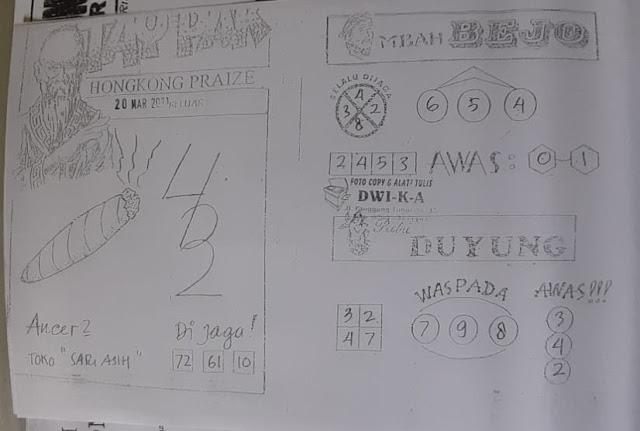 HONGKONG PRAIZE
20 MAR
4
3
2
Ancer2
TOKO "SARI ASIH"
Di jaga!
72 61 10
MBAH BEJO
SELALU DIJAGA
4
3 2
8
6 5 4
2 4 5 3
AWAS: 0-1
FOTO COPY & ALAT2 TULIS
DWI-K-A
Putri
DUYUNG
WASPADA
7 9 8
AWAS!!!
3
4
2
3 2
4 7